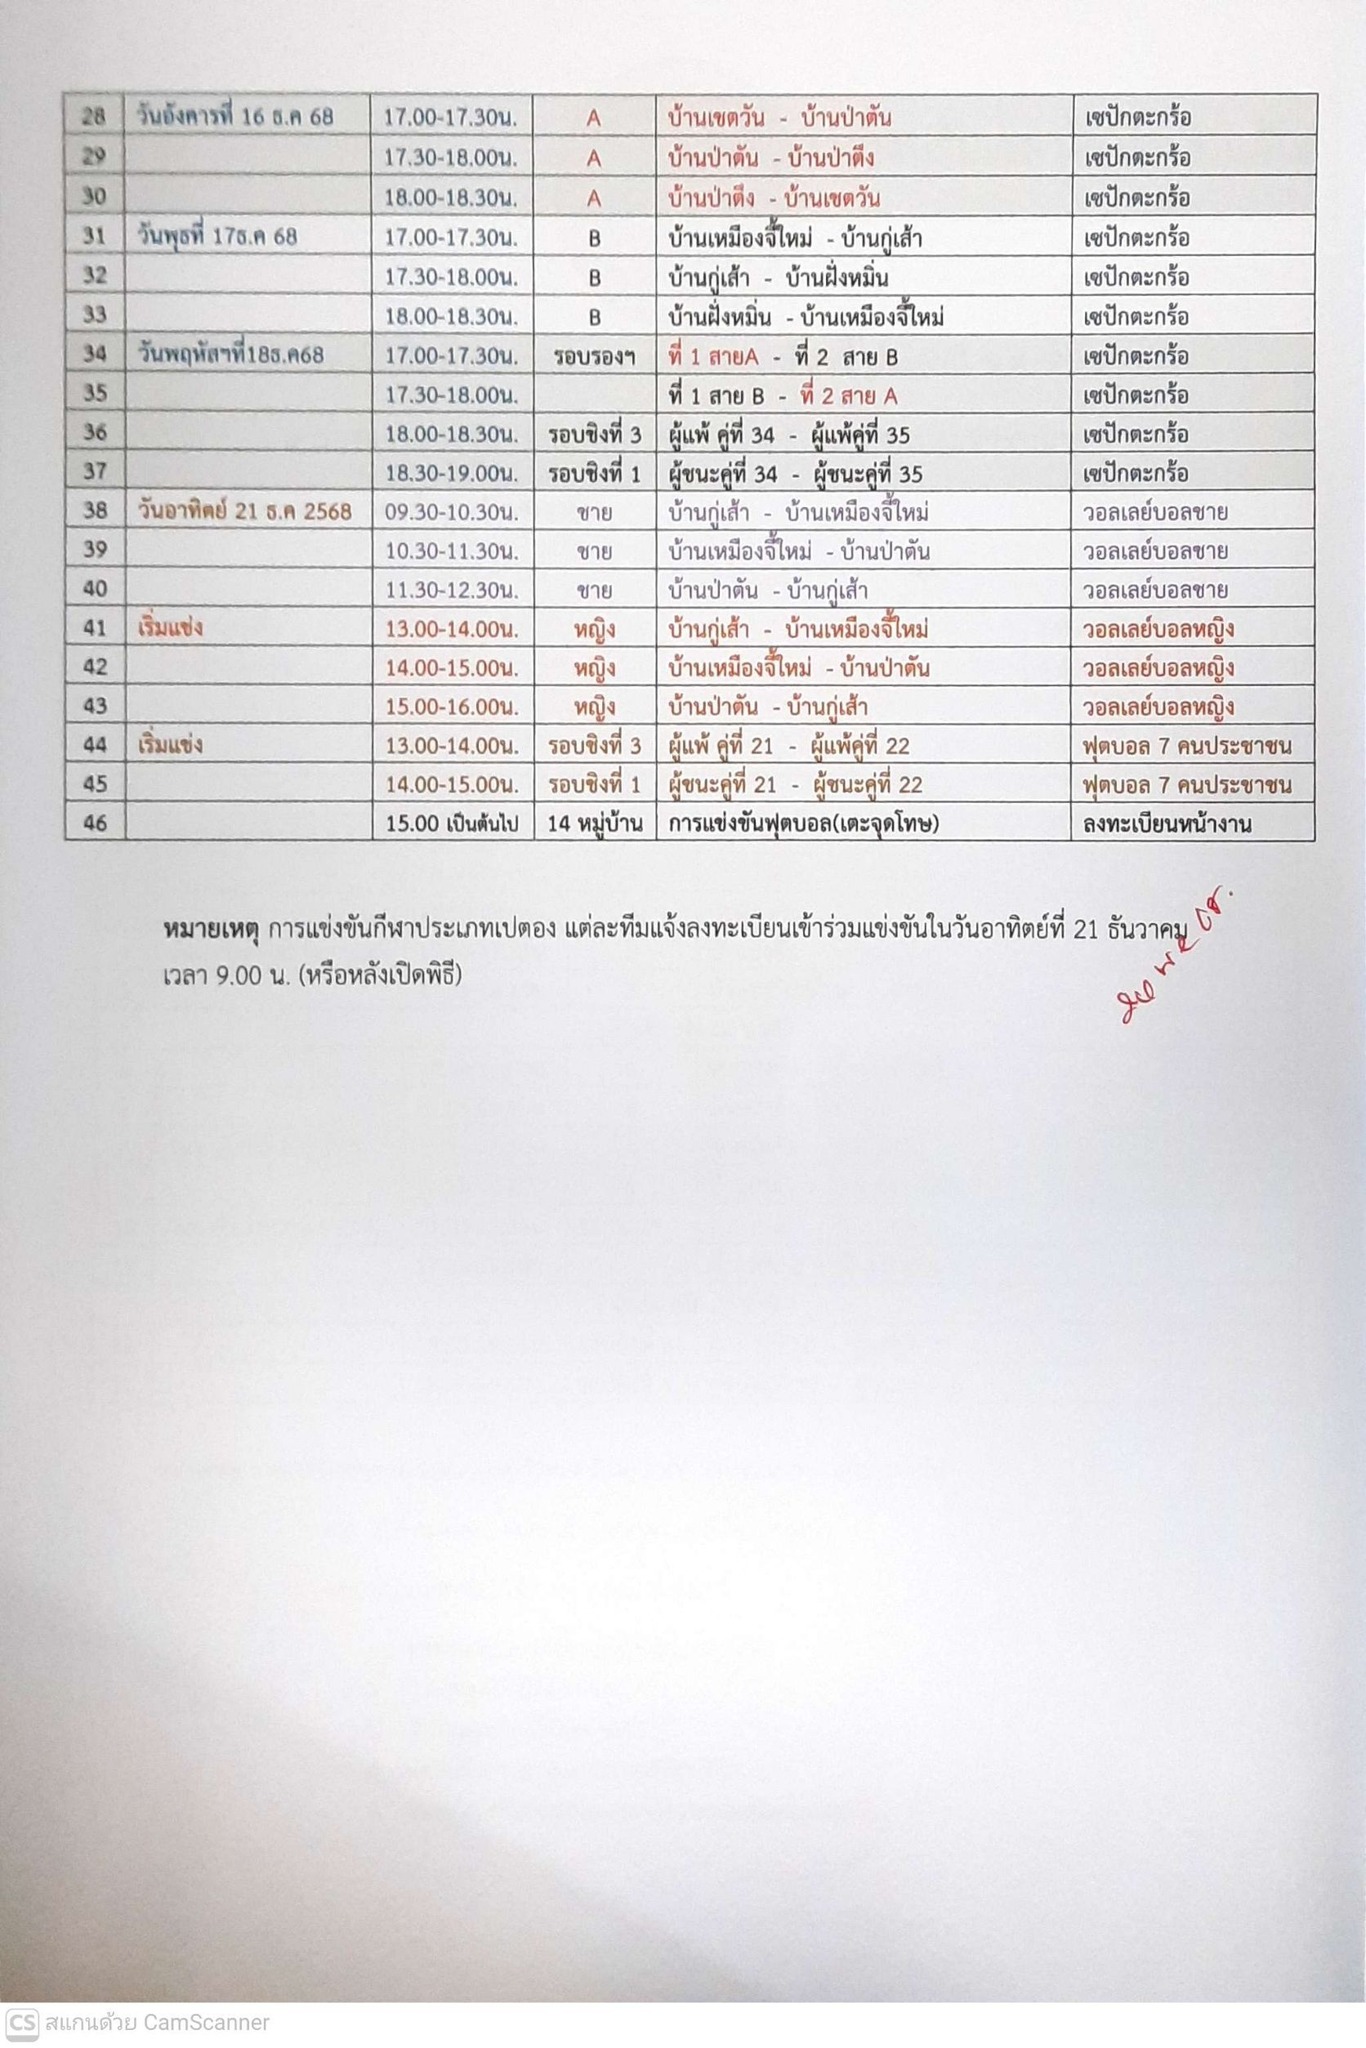 28 วันอังคารที่ 16 ธ.ค 68 17.00-17.30น. A บ้านเชตวัน - บ้านป่าตัน เซปักตะกร้อ
29 17.30-18.00น. A บ้านป่าตัน - บ้านป่าตึง เซปักตะกร้อ
30 18.00-18.30น. A บ้านป่าตึง - บ้านเชตวัน เซปักตะกร้อ
31 วันพุธที่ 17ธ.ค 68 17.00-17.30น. B บ้านเหมืองจี้ใหม่ - บ้านกู่เส้า เซปักตะกร้อ
32 17.30-18.00น. B บ้านกู่เส้า - บ้านฝั่งหมิ่น เซปักตะกร้อ
33 18.00-18.30น. B บ้านฝั่งหมิ่น - บ้านเหมืองจี้ใหม่ เซปักตะกร้อ
34 วันพฤหัสฯที่18ธ.ค68 17.00-17.30น. รอบรองฯ ที่ 1 สายA - ที่ 2 สาย B เซปักตะกร้อ
35 17.30-18.00น. ที่ 1 สาย B - ที่ 2 สาย A เซปักตะกร้อ
36 18.00-18.30น. รอบชิงที่ 3 ผู้แพ้ คู่ที่ 34 - ผู้แพ้คู่ที่ 35 เซปักตะกร้อ
37 18.30-19.00น. รอบชิงที่ 1 ผู้ชนะคู่ที่ 34 - ผู้ชนะคู่ที่ 35 เซปักตะกร้อ
38 วันอาทิตย์ 21 ธ.ค 2568 09.30-10.30น. ชาย บ้านกู่เส้า - บ้านเหมืองจี้ใหม่ วอลเลย์บอลชาย
39 10.30-11.30น. ชาย บ้านเหมืองจี้ใหม่ - บ้านป่าตัน วอลเลย์บอลชาย
40 11.30-12.30น. ชาย บ้านป่าตัน - บ้านกู่เส้า วอลเลย์บอลชาย
41 เริ่มแข่ง 13.00-14.00น. หญิง บ้านกู่เส้า - บ้านเหมืองจี้ใหม่ วอลเลย์บอลหญิง
42 14.00-15.00น. หญิง บ้านเหมืองจี้ใหม่ - บ้านป่าตัน วอลเลย์บอลหญิง
43 15.00-16.00น. หญิง บ้านป่าตัน - บ้านกู่เส้า วอลเลย์บอลหญิง
44 เริ่มแข่ง 13.00-14.00น. รอบชิงที่ 3 ผู้แพ้ คู่ที่ 21 - ผู้แพ้คู่ที่ 22 ฟุตบอล 7 คนประชาชน
45 14.00-15.00น. รอบชิงที่ 1 ผู้ชนะคู่ที่ 21 - ผู้ชนะคู่ที่ 22 ฟุตบอล 7 คนประชาชน
46 15.00 เป็นต้นไป 14 หมู่บ้าน การแข่งขันฟุตบอล(เตะจุดโทษ) ลงทะเบียนหน้างาน
หมายเหตุ การแข่งขันกีฬาประเภทเปตอง แต่ละทีมแจ้งลงทะเบียนเข้าร่วมแข่งขันในวันอาทิตย์ที่ 21 ธันวาคม
เวลา 9.00 น. (หรือหลังเปิดพิธี)
CS สแกนด้วย CamScanner